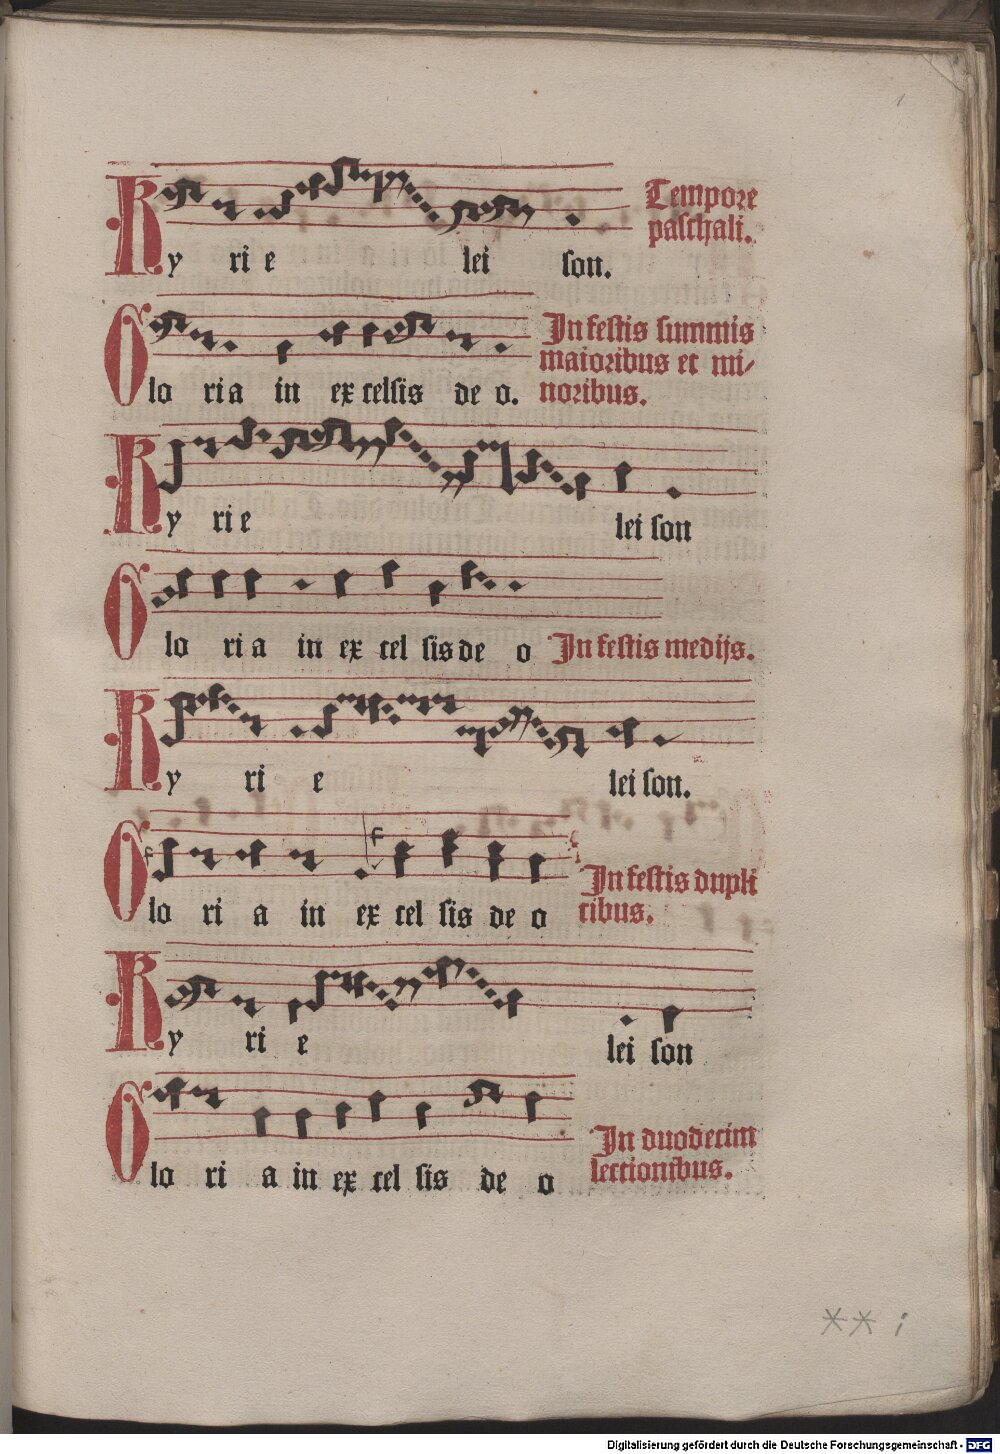 1
Ky ri e lei son. Tempore paschali.
Glo ri a in ex celsis de o. In festis summis maioribus et mi/noribus.
Ky ri e lei son
Glo ri a in ex cel sis de o In festis medijs.
Ky ri e lei son.
Glo ri a in ex cel sis de o In festis dupli cibus.
Ky ri e lei son
Glo ri a in ex cel sis de o In duodecim lectionibus.
** i
Digitalisierung gefördert durch die Deutsche Forschungsgemeinschaft - DFG